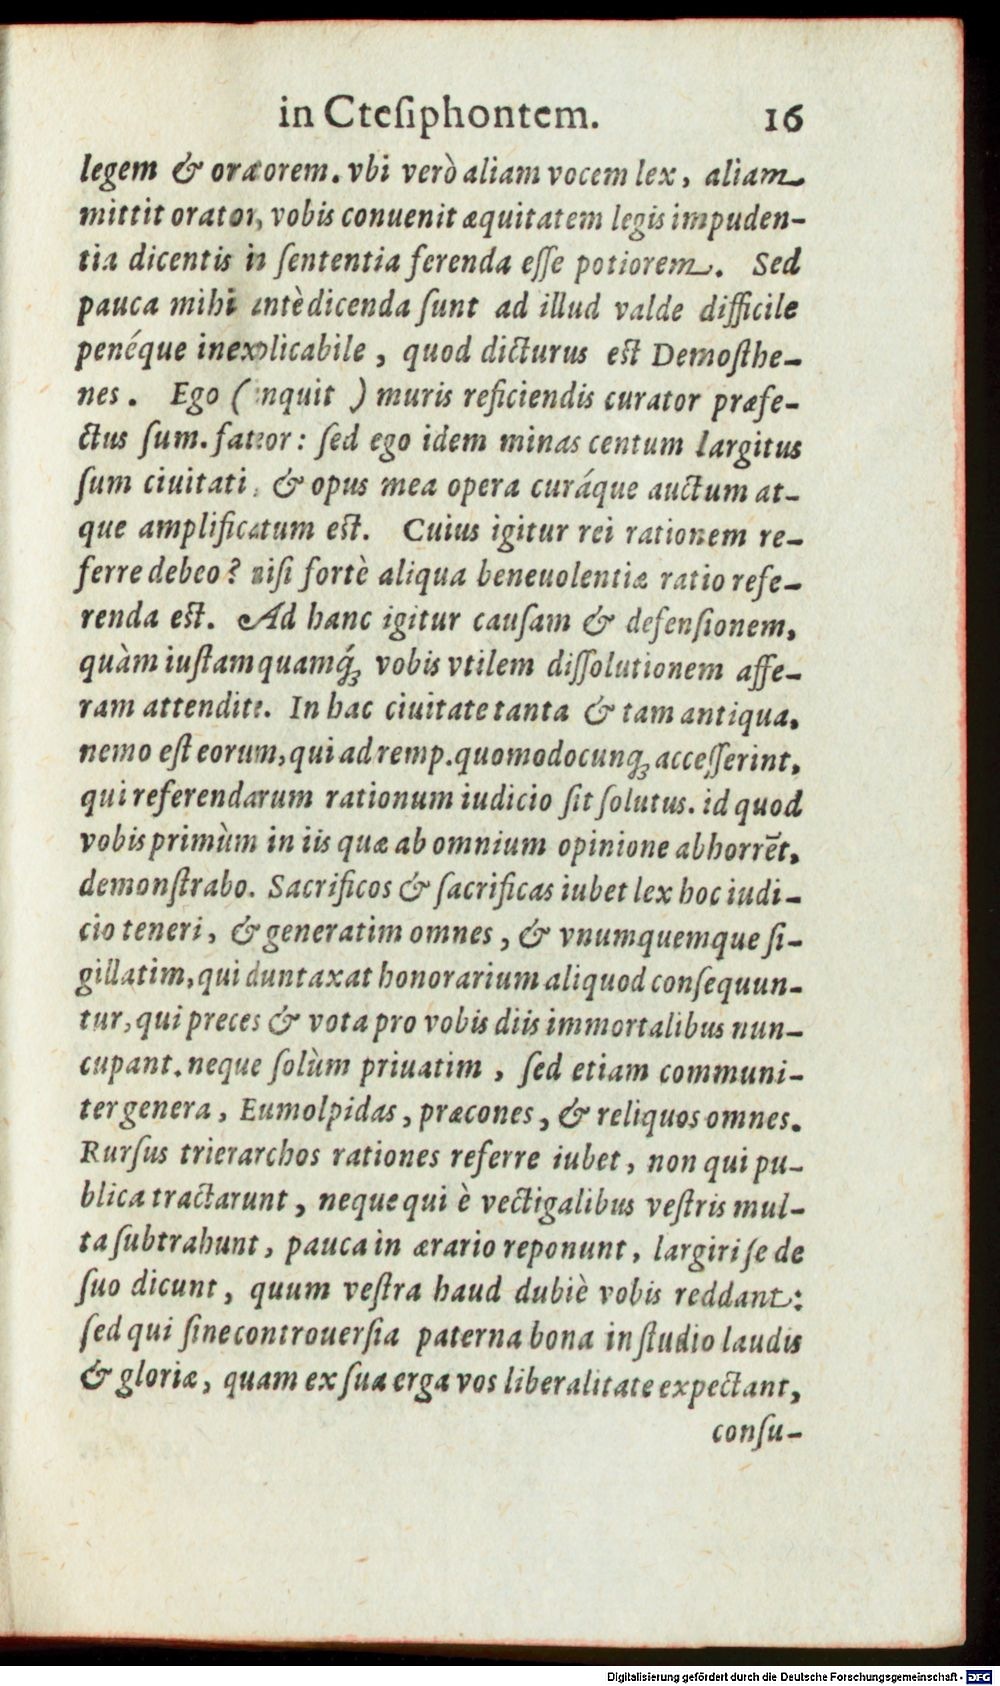 in Ctesiphontem. 16
legem & oratorem. vbi verò aliam vocem lex, aliam
mittit orator, vobis conuenit æquitatem legis impuden-
tia dicentis in ſententia ferenda eſſe potiorem. Sed
pauca mihi antè dicenda ſunt ad illud valde difficile
penéque inexplicabile, quod dicturus est Demoſthe-
nes. Ego (inquit) muris reficiendis curator præfe-
ctus ſum. fateor: ſed ego idem minas centum largitus
ſum ciuitati, & opus mea opera curáque auctum at-
que amplificatum est. Cuius igitur rei rationem re-
ferre debeo? niſi fortè aliqua beneuolentiæ ratio refe-
renda est. Ad hanc igitur cauſam & defenſionem,
quàm iuſtam quamq́; vobis vtilem diſſolutionem affe-
ram attendite. In hac ciuitate tanta & tam antiqua,
nemo eſt eorum, qui ad remp. quomodocunq; acceſſerint,
qui referendarum rationum iudicio ſit ſolutus. id quod
vobis primùm in iis quæ ab omnium opinione abhorrẽt,
demonſtrabo. Sacrificos & ſacrificas iubet lex hoc iudi-
cio teneri, & generatim omnes, & vnumquemque ſi-
gillatim, qui duntaxat honorarium aliquod conſequun-
tur, qui preces & vota pro vobis diis immortalibus nun-
cupant. neque ſolùm priuatim, ſed etiam communi-
ter genera, Eumolpidas, præcones, & reliquos omnes.
Rurſus trierarchos rationes referre iubet, non qui pu-
blica tractarunt, neque qui è vectigalibus veſtris mul-
ta ſubtrahunt, pauca in ærario reponunt, largiri ſe de
ſuo dicunt, quum veſtra haud dubiè vobis reddant:
ſed qui ſine controuerſia paterna bona in ſtudio laudis
& gloriæ, quam ex ſua erga vos liberalitate expectant,
conſu-
Digitalisierung gefördert durch die Deutsche Forschungsgemeinschaft - DFG